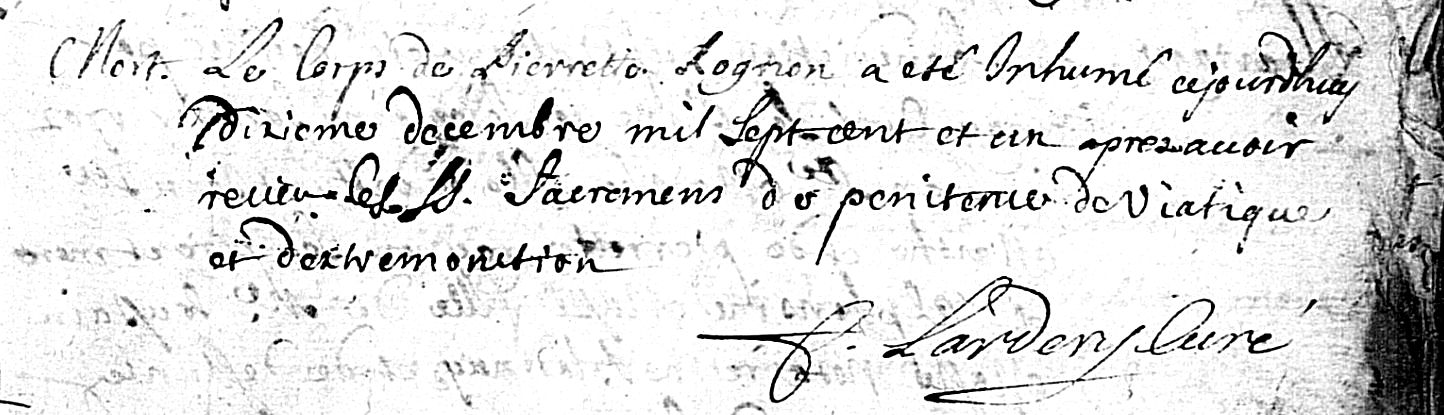 Mort. Le Corps de Pierrette Rognon a eté Inhumé cejourdhuy
dixieme decembre mil Sept cent et un aprez avoir
receu les SS. Sacremens de penitence de Viatique
et dextremonction
Lardery Curé